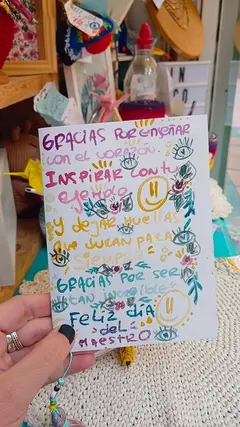 GRACIAS POR ENSEÑAR
CON EL CORAZÓN.
INSPIRAR CON TU
EJEMPLO
Y DEJAR HUELLAS
QUE DURAN PARA
SIEMPRE
GRACIAS POR SER
TAN INCREÍBLE
FELIZ DÍA
DEL
MAESTRO